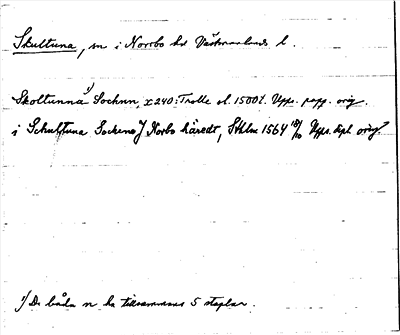 Skultuna, sn i Norrbo hd Västmanlands l.
1)
Skoltunna Sochnn, x240: Trolle sl. 1500t. Upps. papp. orig.
i Schultuna Sockene J Norbo häredt, Sthlm 1564 18/10 Upps. dipl. orig.
1) De båda n ha tillsammans 5 staplar.